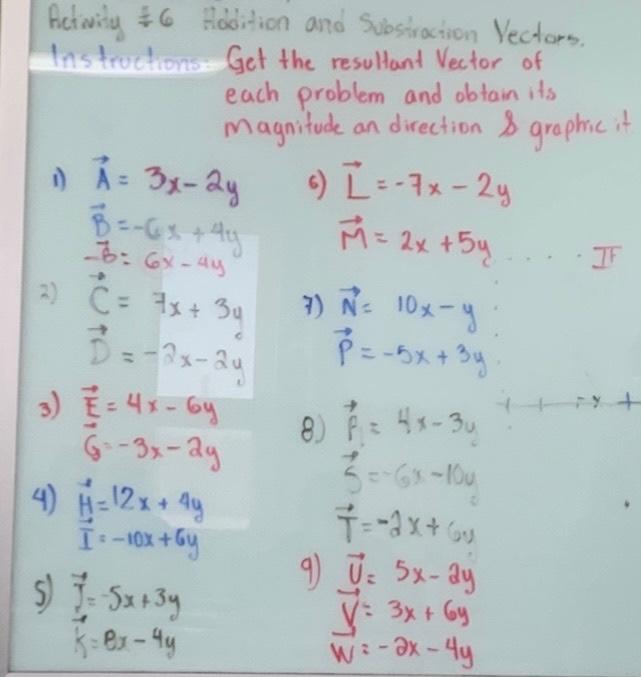 Activity #6 Addition and Substraction Vectors.
Instructions: Get the resultant Vector of
each problem and obtain its
Magnitude an direction & graphic it
1) A = 3x - 2y
B = -6x + 4y
-B = 6x - 4y
2) C = 7x + 3y
D = -2x - 2y
3) E = 4x - 6y
G = -3x - 2y
4) H = 12x + 4y
I = -10x + 6y
5) J = -5x + 3y
K = 8x - 4y
6) L = -7x - 2y
M = 2x + 5y
7) N = 10x - y
P = -5x + 3y
8) = 4x - 3y
S = -6x - 10y
T = -2x + 6y
9) U = 5x - 2y
V = 3x + 6y
W = -2x - 4y
IF